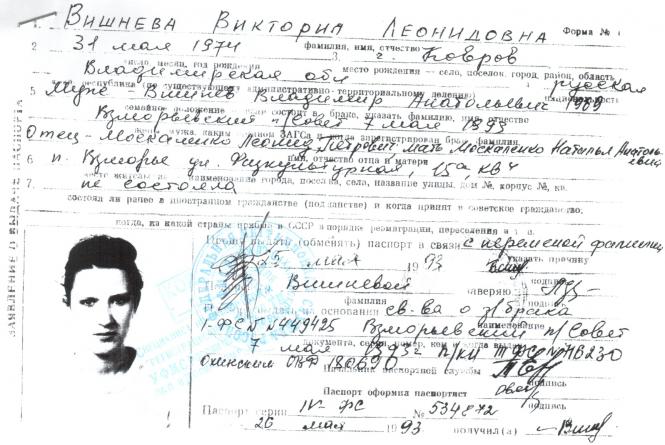 1 Вишнева Виктория Леонидовна Форма №
2 31 мая 1974 фамилия, имя, отчество 3. г. Ковров
число, месяц, год рождения место рождения — село, поселок, город, район, область
Владимирская обл русская
республика (по существующему административно-территориальному делению)
5 Муж - Вишнев Владимир Анатольевич 1969
семейное положение состоит в браке, указать фамилию, имя, отчество
Взморьевский п/Совет 7 мая 1993
мужа, каким органом ЗАГСа и когда зарегистрирован брак фамилия,
Отец - Москаленко Леонид Петрович мать Москаленко Наталья Анатольевна
имя, отчество отца и матери
6 п. Взморье ул. Фискультурная, 15а, кв 4
наименование города, поселка, села, название улицы, дом №, корпус №, кв.
7. не состояла
состоял ли ранее в иностранном гражданстве (подданстве) и когда принят в советское гражданство;
когда, из какой страны прибыл в СССР в порядке репатриации, переселения и т. п.
Прошу выдать (обменять) паспорт в связи с переменой фамилии
указать причину
25 мая 1993
Вишневой заверяю
фамилия подпись
на основании св-ва о з/брака
I-ФС № 449425 Взморьевский п/Совет
наименование
7 мая 1993г
документа, серия, номер, кем и когда выдан
Охинским ОВД
Начальник паспортной службы
подпись
Паспорт оформил паспортист
подпись
Паспорт серии IV-ФС № 534872
26 мая 1993 получил(а)
ЗАЯВЛЕНИЕ О ВЫДАЧЕ ПАСПОРТА